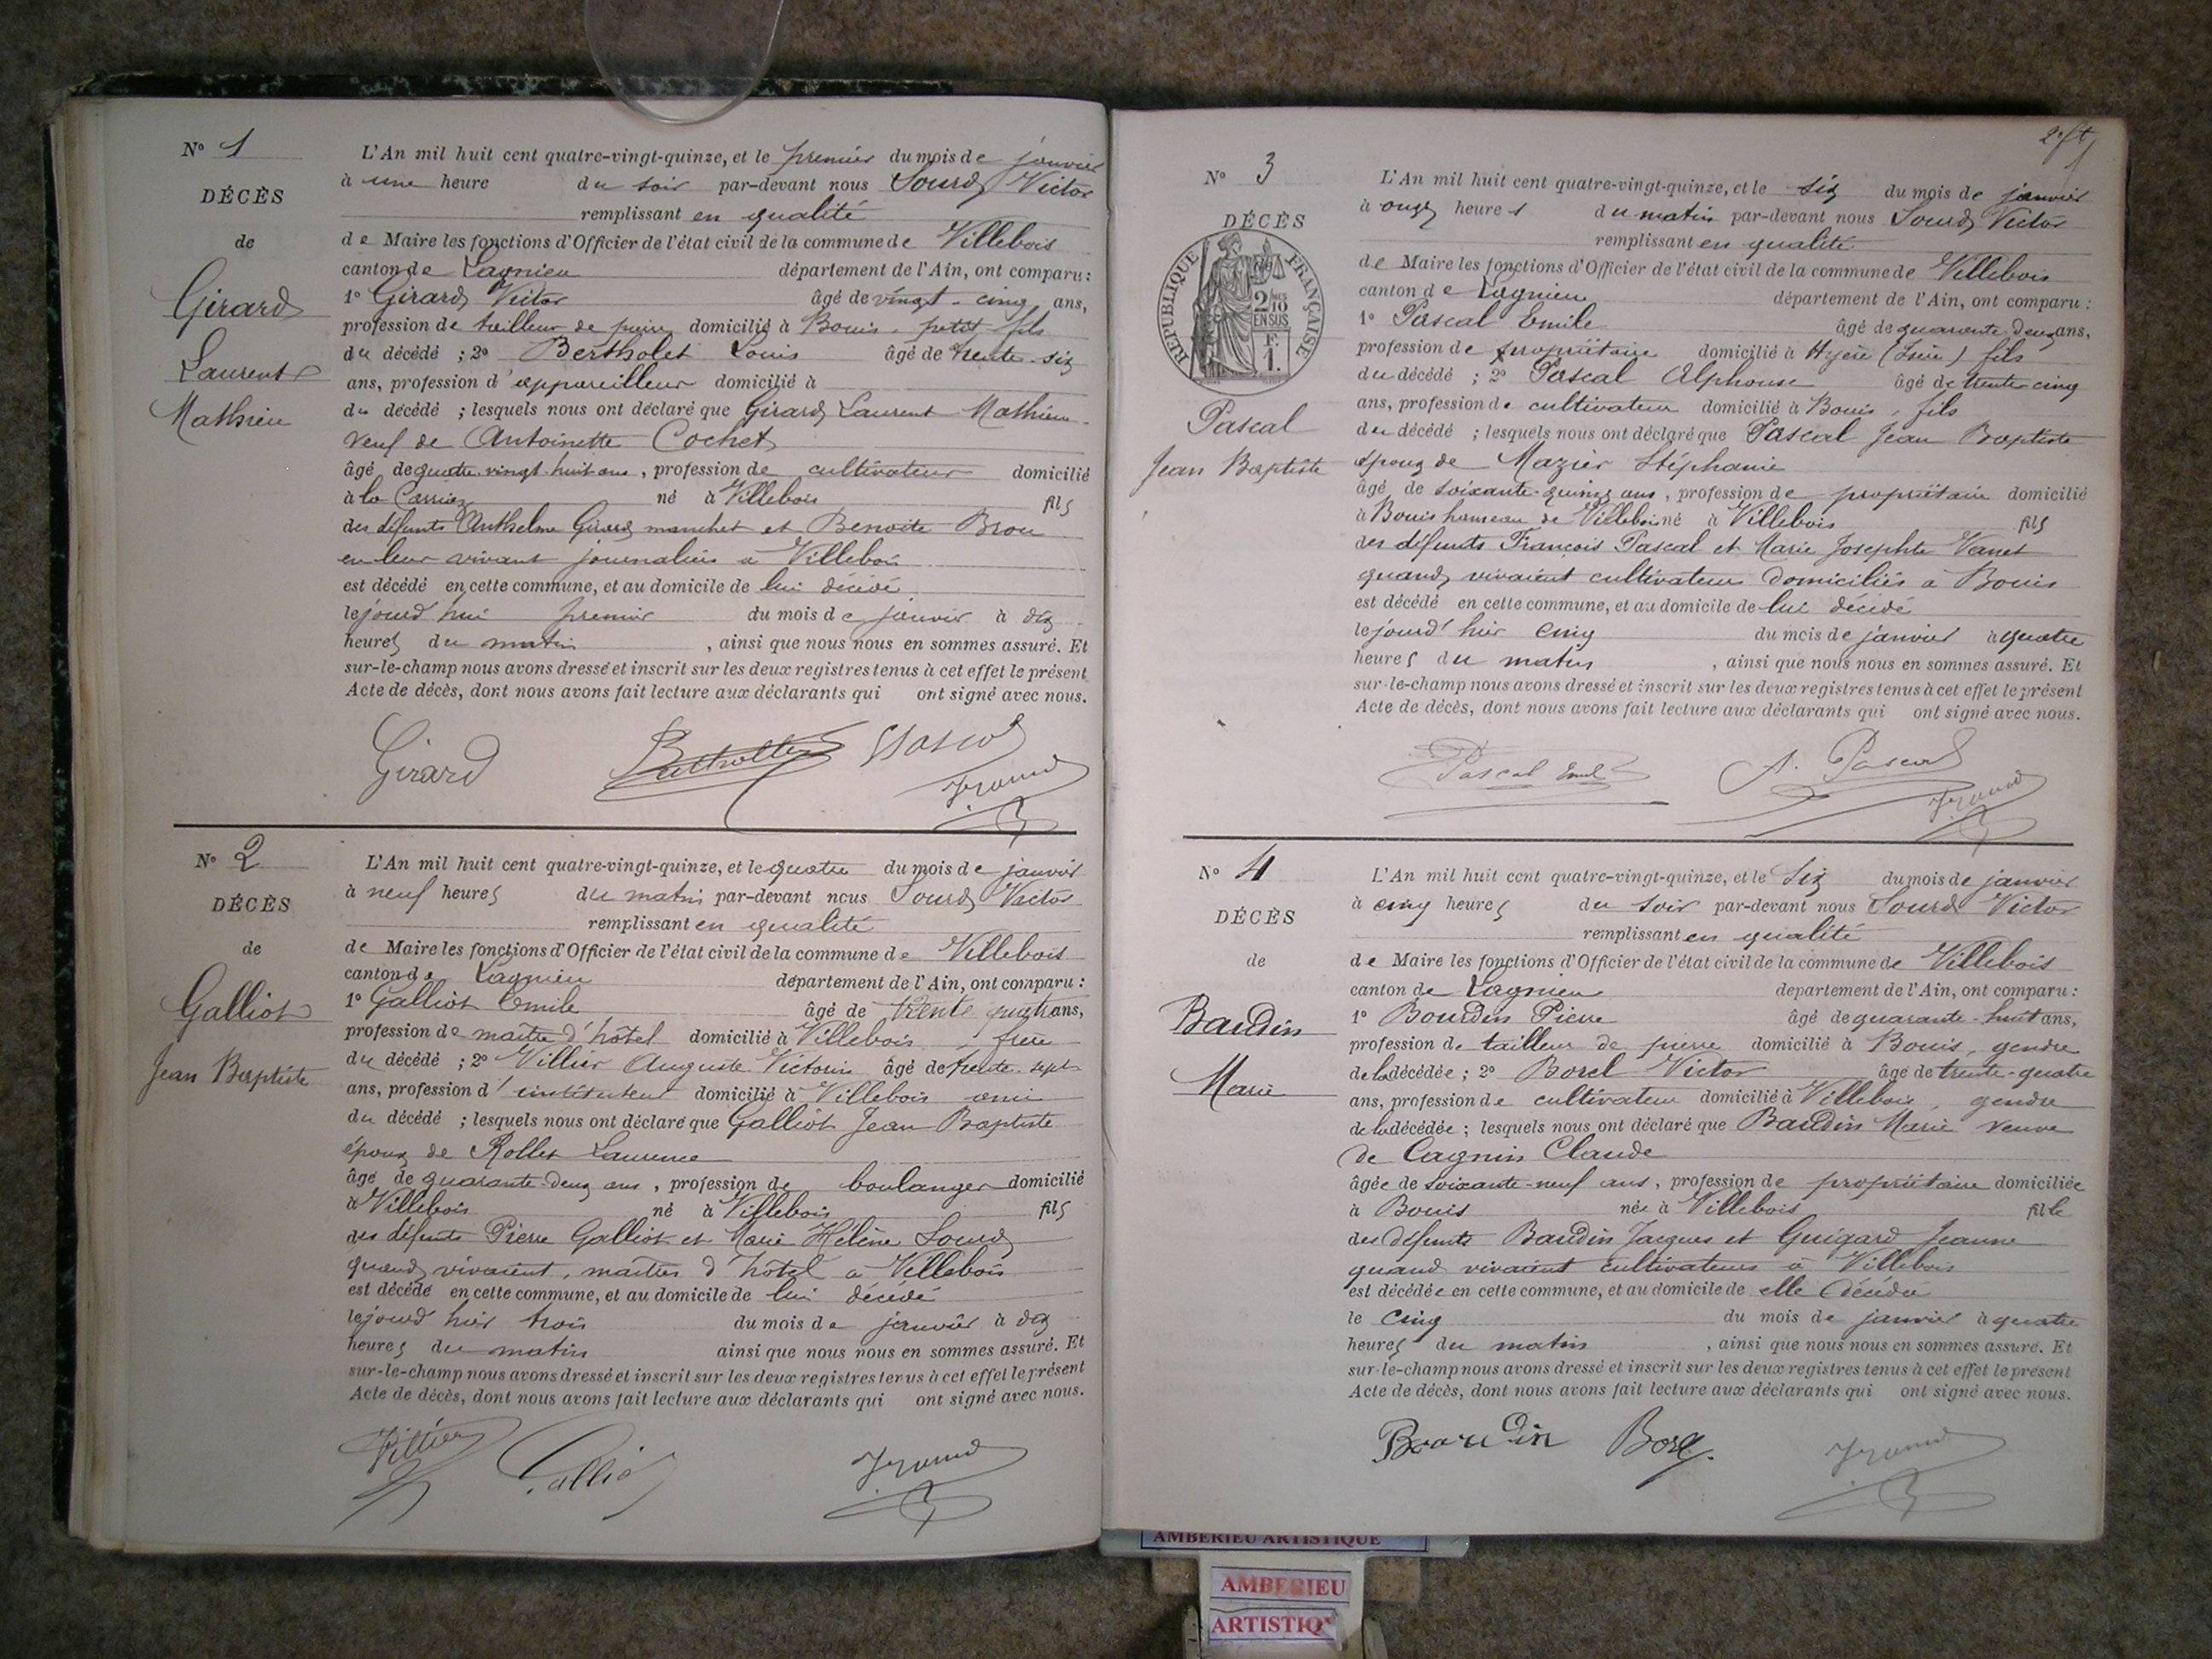 N° 1
DÉCÈS
de
Girard
Laurent
Mathieu
L'An mil huit cent quatre-vingt-quinze, et le premier du mois de janvier
à une heure du soir par-devant nous Sourd Victor
remplissant en qualité
de Maire les fonctions d'Officier de l'état civil de la commune de Villebois
canton de Lagnieu département de l'Ain, ont comparu :
1° Girard Victor âgé de vingt-cinq ans,
profession de tailleur de pierre domicilié à Bouis, petit-fils
du décédé ; 2° Bertholet Louis âgé de trente-six
ans, profession d'appareilleur domicilié à
du décédé ; lesquels nous ont déclaré que Girard Laurent Mathieu
veuf de Antoinette Cochet
âgé de quatre vingt-huit ans, profession de cultivateur domicilié
à la né à Villebois fils
des défunts Anthelme Girard manchet et Benoite Brou
en leur vivant journaliers à Villebois
est décédé en cette commune, et au domicile de lui décédé
le jourd'hui premier du mois de janvier à dix
heures du matin, ainsi que nous nous en sommes assuré. Et
sur-le-champ nous avons dressé et inscrit sur les deux registres tenus à cet effet le présent
Acte de décès, dont nous avons fait lecture aux déclarants qui ont signé avec nous.
Girard
N° 2
DÉCÈS
de
Galliot
Jean Baptiste
L'An mil huit cent quatre-vingt-quinze, et le quatre du mois de janvier
à neuf heures du matin par-devant nous Sourd Victor
remplissant en qualité
de Maire les fonctions d'Officier de l'état civil de la commune de Villebois
canton de Lagnieu département de l'Ain, ont comparu :
1° Galliot Emile âgé de trente quatre ans,
profession de maître d'hôtel domicilié à Villebois, frère
du décédé ; 2° Villier Auguste Victorin âgé de trente-sept
ans, profession d'instituteur domicilié à Villebois ami
du décédé ; lesquels nous ont déclaré que Galliot Jean Baptiste
époux de Rollet Laurence
âgé de quarante-deux ans, profession de boulanger domicilié
à Villebois né à Villebois fils
des défunts Pierre Galliot et Marie Hélène Sourd
quand vivaient, maîtres d'hôtel à Villebois
est décédé en cette commune, et au domicile de lui décédé
le jourd hier trois du mois de janvier à dix
heures du matin ainsi que nous nous en sommes assuré. Et
sur-le-champ nous avons dressé et inscrit sur les deux registres tenus à cet effet le présent
Acte de décès, dont nous avons fait lecture aux déclarants qui ont signé avec nous.
Villier
N° 3
DÉCÈS
RÉPUBLIQUE FRANÇAISE
2/10 EN SUS
F. 1.
Pascal
Jean Baptiste
L'An mil huit cent quatre-vingt-quinze, et le six du mois de janvier
à onze heures du matin par-devant nous Sourd Victor
remplissant en qualité
de Maire les fonctions d'Officier de l'état civil de la commune de Villebois
canton de Lagnieu département de l'Ain, ont comparu :
1° Pascal Emile âgé de quarante-deux ans,
profession de propriétaire domicilié à Hyère (Isère) fils
du décédé ; 2° Pascal Alphonse âgé de trente-cinq
ans, profession de cultivateur domicilié à Bouis, fils
du décédé ; lesquels nous ont déclaré que Pascal Jean Baptiste
époux de Mazier Stéphanie
âgé de soixante-quinze ans, profession de propriétaire domicilié
à Bouis hameau de Villebois né à Villebois fils
des défunts François Pascal et Marie Josephte Vanet
quand vivaient cultivateurs domiciliés à Bouis
est décédé en cette commune, et au domicile de lui décédé
le jourd'hier cinq du mois de janvier à quatre
heures du matin, ainsi que nous nous en sommes assuré. Et
sur-le-champ nous avons dressé et inscrit sur les deux registres tenus à cet effet le présent
Acte de décès, dont nous avons fait lecture aux déclarants qui ont signé avec nous.
Pascal Emile A. Pascal
N° 4
DÉCÈS
de
Baudin
Marie
L'An mil huit cent quatre-vingt-quinze, et le six du mois de janvier
à cinq heures du soir par-devant nous Sourd Victor
remplissant en qualité
de Maire les fonctions d'Officier de l'état civil de la commune de Villebois
canton de Lagnieu département de l'Ain, ont comparu :
1° Bourdin Pierre âgé de quarante-huit ans,
profession de tailleur de pierre domicilié à Bouis, gendre
de la décédée ; 2° Borel Victor âgé de trente-quatre
ans, profession de cultivateur domicilié à Villebois, gendre
de la décédée ; lesquels nous ont déclaré que Baudin Marie veuve
de Cagnin Claude
âgée de soixante-neuf ans, profession de propriétaire domiciliée
à Bouis née à Villebois fille
des défunts Baudin Jacques et Guigard Jeanne
quand vivaient cultivateurs à Villebois
est décédée en cette commune, et au domicile de elle décédée
le cinq du mois de janvier à quatre
heures du matin, ainsi que nous nous en sommes assuré. Et
sur-le-champ nous avons dressé et inscrit sur les deux registres tenus à cet effet le présent
Acte de décès, dont nous avons fait lecture aux déclarants qui ont signé avec nous.
Bourdin
AMBERIEU ARTISTIQUE
AMBERIEU
ARTISTIQ